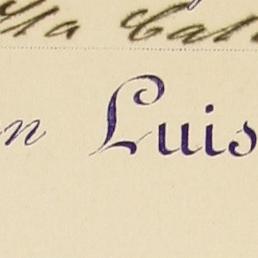 la Cal
n Luis